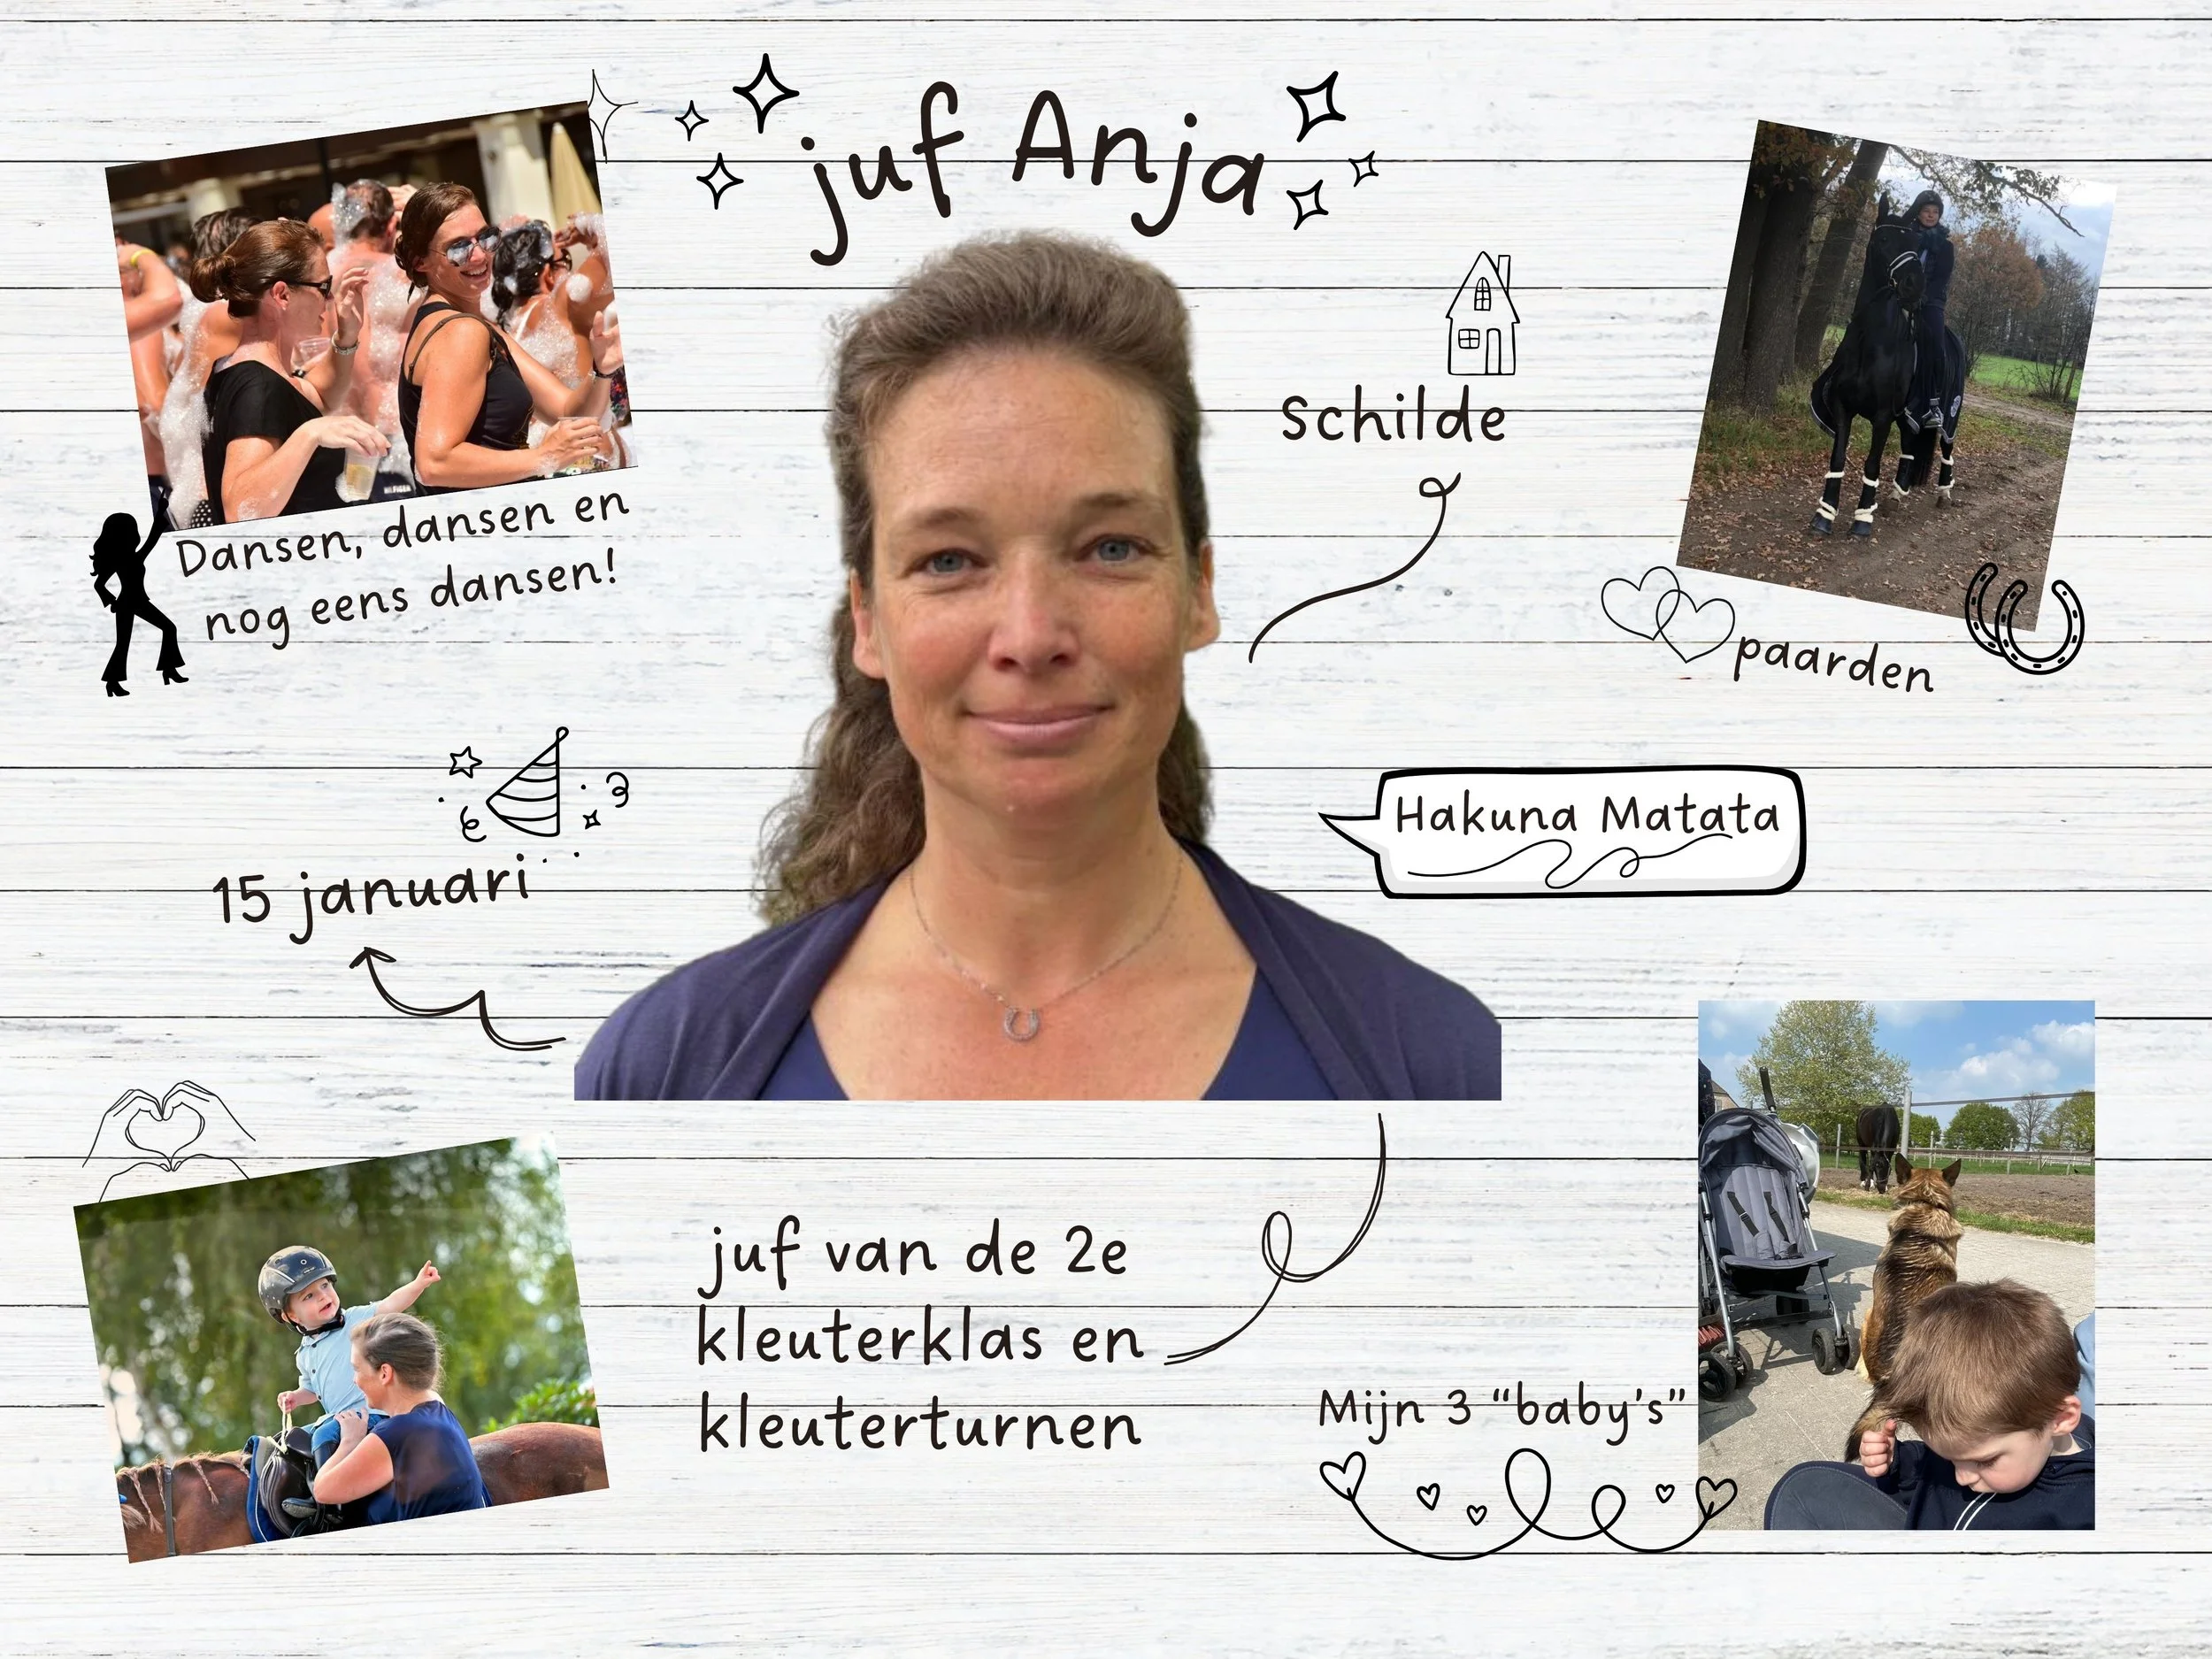 juf Anja
Schilde
Dansen, dansen en
nog eens dansen!
paarden
Hakuna Matata
15 januari
juf van de 2e
kleuterklas en
kleuterturnen
Mijn 3 “baby's”